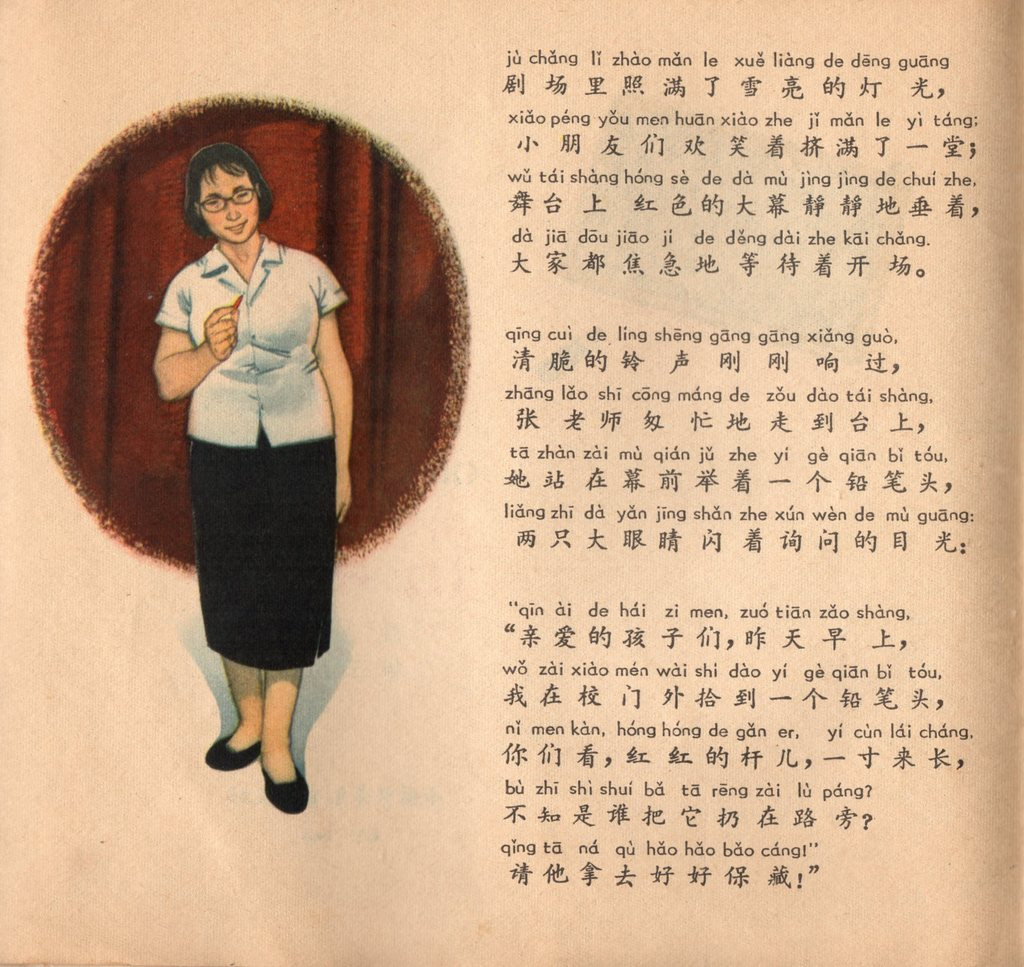 jù chǎng lǐ zhào mǎn le xuě liàng de dēng guāng
剧场里照满了雪亮的灯光，
xiǎo péng yǒu men huān xiào zhe jǐ mǎn le yì táng;
小朋友们欢笑着挤满了一堂；
wǔ tái shàng hóng sè de dà mù jìng jìng de chuí zhe,
舞台上红色的大幕静静地垂着，
dà jiā dōu jiāo jí de děng dài zhe kāi chǎng.
大家都焦急地等待着开场。
qīng cuì de líng shēng gāng gāng xiǎng guò,
清脆的铃声刚刚响过，
zhāng lǎo shī cōng máng de zǒu dào tái shàng,
张老师匆忙地走到台上，
tā zhàn zài mù qián jǔ zhe yí gè qiān bǐ tóu,
她站在幕前举着一个铅笔头，
liǎng zhī dà yǎn jīng shǎn zhe xún wèn de mù guāng:
两只大眼睛闪着询问的目光：
"qīn ài de hái zi men, zuó tiān zǎo shàng,
“亲爱的孩子们，昨天早上，
wǒ zài xiào mén wài shi dào yí gè qiān bǐ tóu,
我在校门外拾到一个铅笔头，
nǐ men kàn, hóng hóng de gǎn er, yí cùn lái cháng.
你们看，红红的杆儿，一寸来长，
bù zhī shì shuí bǎ tā rēng zài lù páng?
不知是谁把它扔在路旁？
qǐng tā ná qù hǎo hǎo bǎo cáng!"
请他拿去好好保藏！”